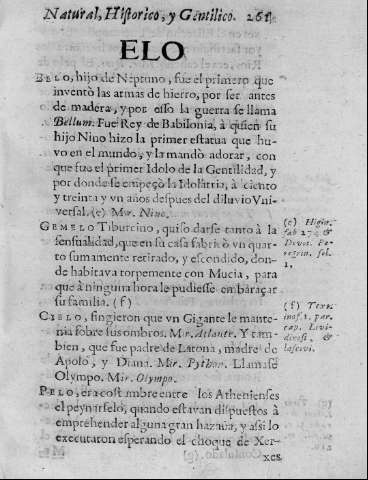 Natural, Historico, y Gentilico. 261
ELO
BELO, hijo de Neptuno, fue el primero que
inventò las armas de hierro, por ser antes
de madera, y por esso la guerra se llama
Bellum. Fue Rey de Babilonia, à quien su
hijo Nino hizo la primer estatua que hu-
vo en el mundo, y la mandò adorar, con
que fue el primer Idolo de la Gentilidad, y
por donde se empeçò la Idolatria, à ciento
y treinta y vn años despues del diluvio Vni-
versal. (e) Mir. Nino.
GEMELO Tiburtino, quiso darse tanto à la
sensualidad, que en su casa fabricò vn quar-
to sumamente retirado, y escondido, don-
de habitava torpemente con Mucia, para
que à ninguna hora le pudiesse embaraçar
su familia. (f)
CIELO, fingieron que vn Gigante le mante-
nia sobre sus ombros. Mir. Atlante. Y tam-
bien, que fue padre de Latona, madre de
Apolo, y Diana. Mir. Python. Llamase
Olympo. Mir. Olympo.
PELO, era costumbre entre los Athenienses
el peynarselo, quando estavan dispuestos à
emprehender alguna gran hazaña, y assi lo
executaron esperando el choque de Xer-
xes
(e) Higin.
fab 274 &
peregrin. fol.
1.
(f) Text.
in of. 1. par.
cap. Luxi-
diosi, &
lascivi.